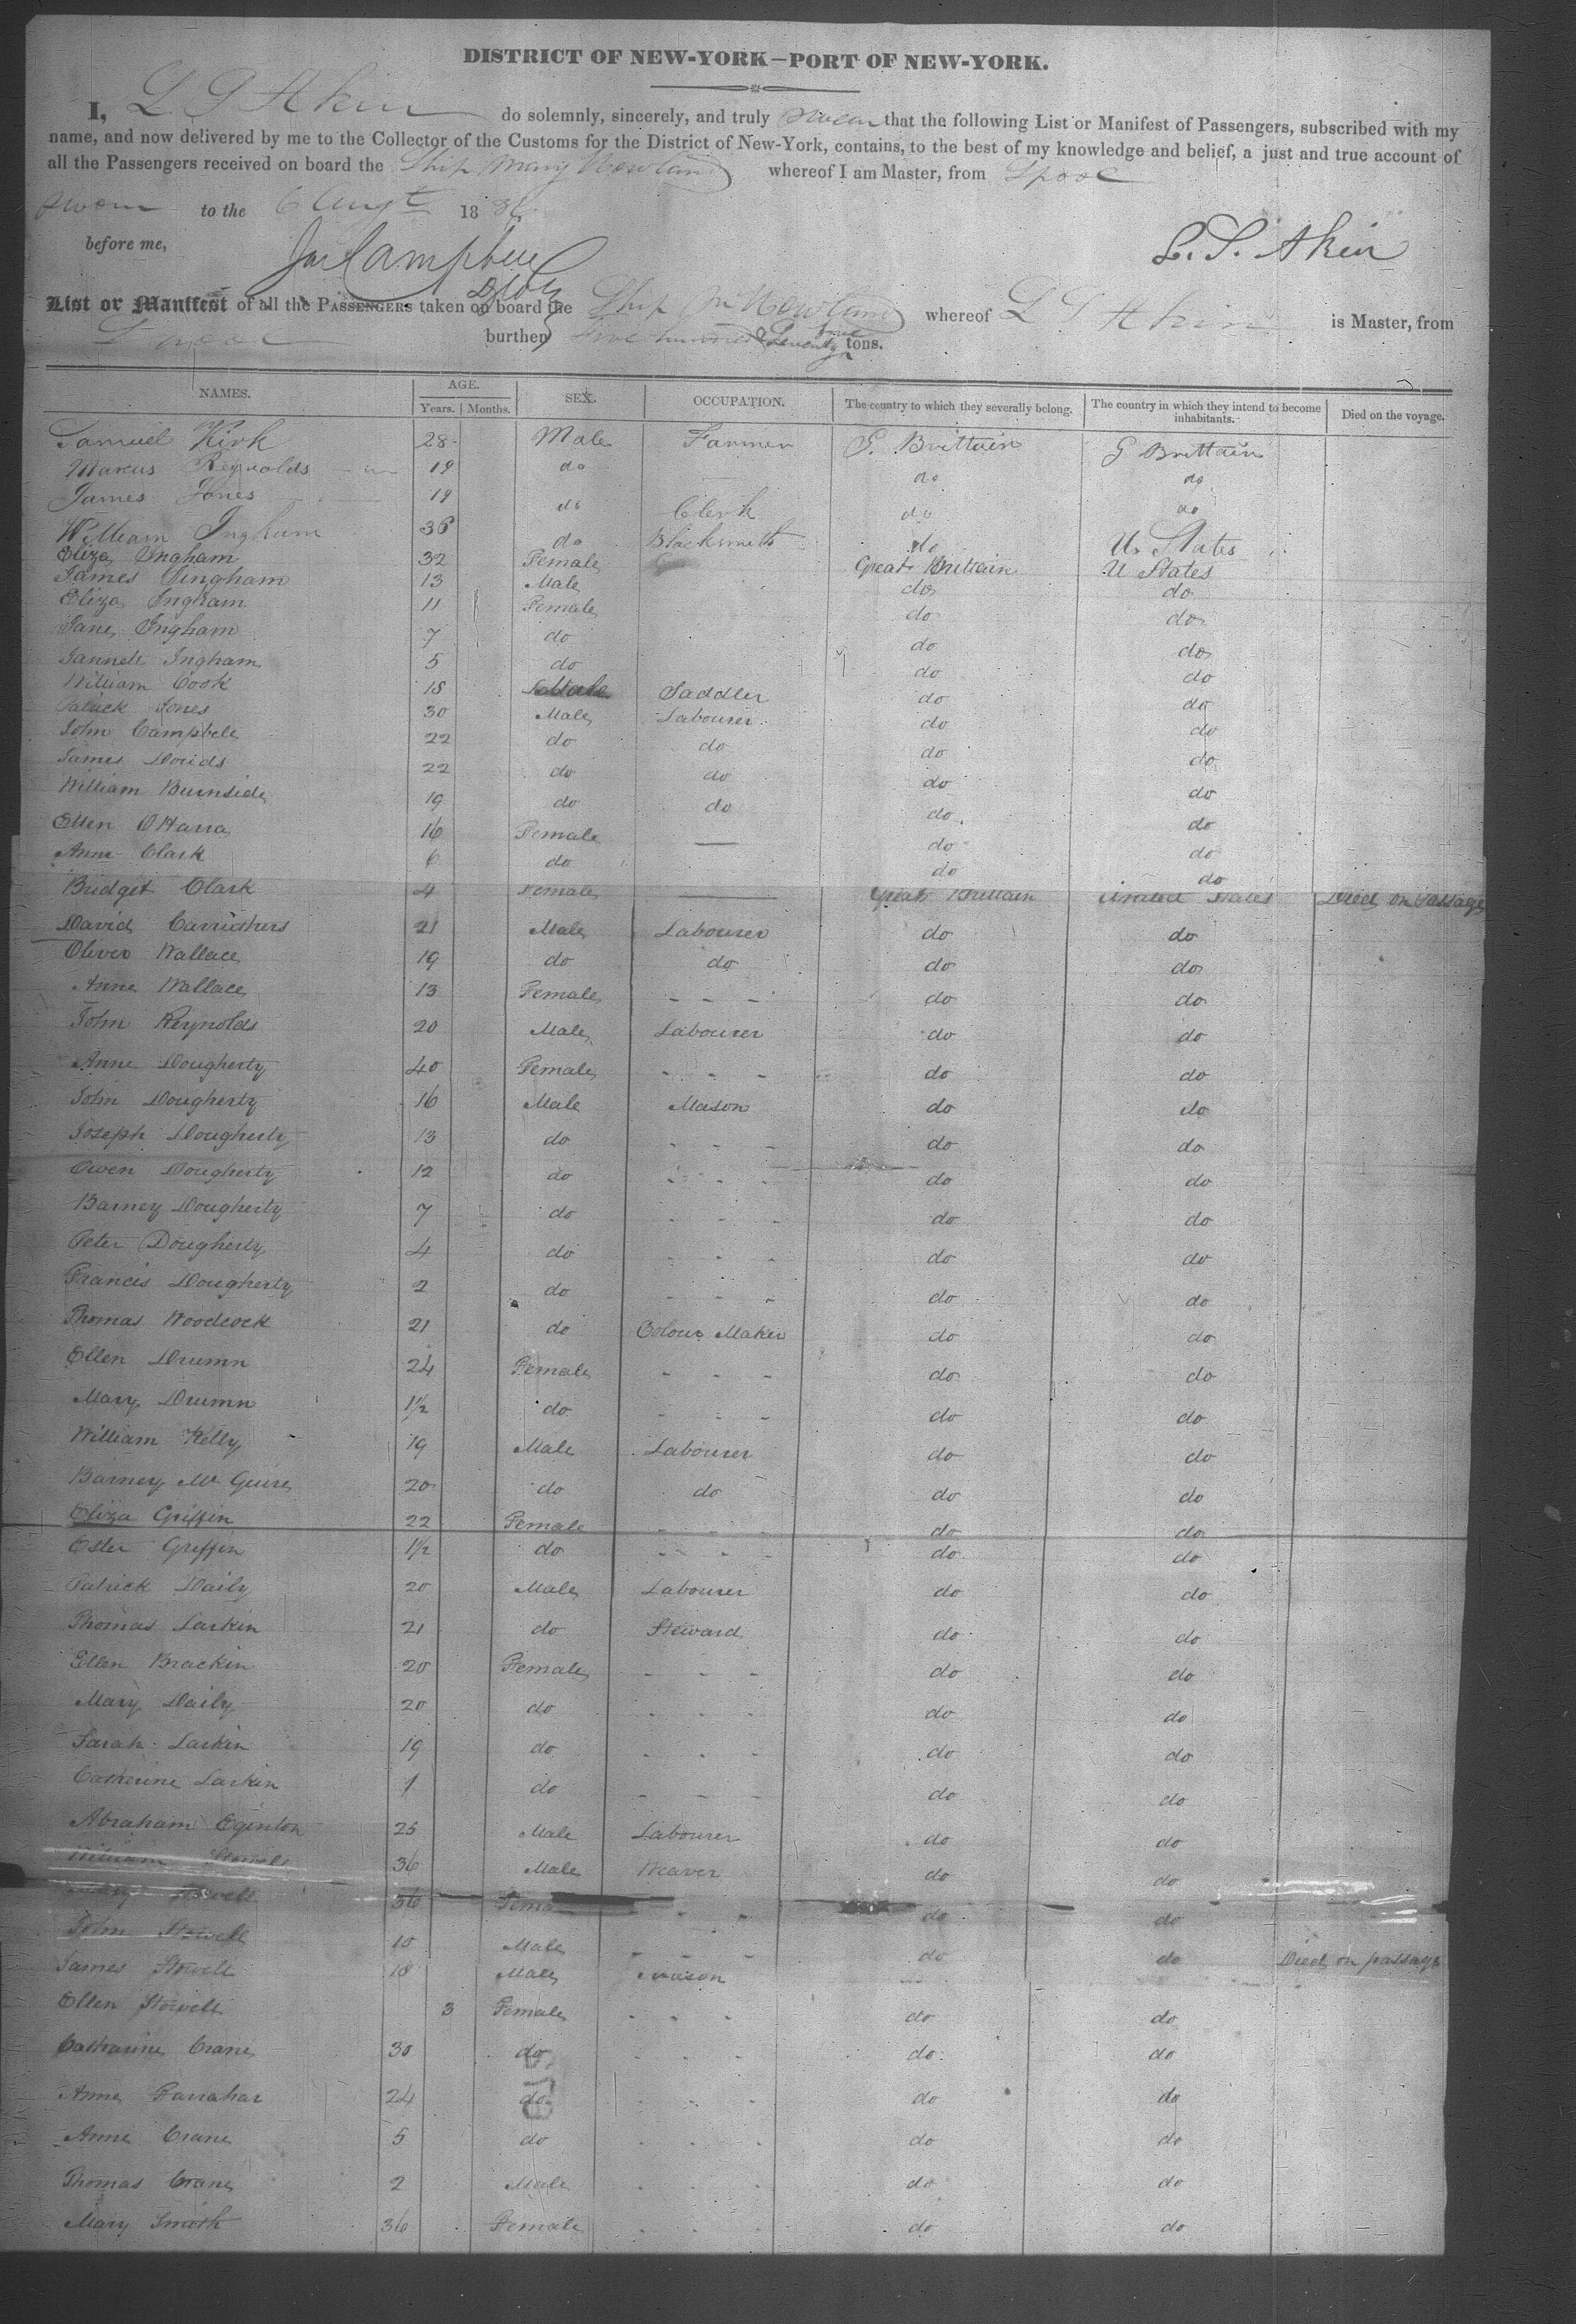 DISTRICT OF NEW-YORK—PORT OF NEW-YORK.
I, L S Akin do solemnly, sincerely, and truly swear that the following List or Manifest of Passengers, subscribed with my
name, and now delivered by me to the Collector of the Customs for the District of New-York, contains, to the best of my knowledge and belief, a just and true account of
all the Passengers received on board the Ship Mary Howland whereof I am Master, from Lpool
Sworn to the 6 Augt 1836
before me,
L. S. Akin
Jas Campbell
List or Manifest of all the PASSENGERS taken on board the Ship M Howland whereof L S Akin is Master, from
Lpool burthen five hundred & Seventy tons.
NAMES. AGE. SEX. OCCUPATION. The country to which they severally belong. The country in which they intend to become inhabitants. Died on the voyage.
Years. Months.
Samuel Kirk 28 Male Farmer G. Brittain G Brittain
Marcus Reynolds 19 do do do
James Jones 19 do Clerk do do
William Ingham 36 do Blacksmith do U. States
Eliza Ingham 32 Female Great Britain U States
James Ingham 13 Male do do
Eliza Ingham 11 Female do do
Jane Ingham 7 do do do
Jannett Ingham 5 do do do
William Cook 18 Male Saddler do do
Patrick Jones 30 Male Labourer do do
John Campbell 22 do do do do
James Douids 22 do do do do
William Burnside 19 do do do do
Ellen OHarra 16 Female — do do
Anne Clark 6 do do do
Bridget Clark 4 Female — Great Brittain United States Died on Passage
David Carruthers 21 Male Labourer do do
Oliver Wallace 19 do do do do
Anne Wallace 13 Female - - - do do
John Reynolds 20 Male Labourer do do
Anne Dougherty 40 Female - - - do do
John Dougherty 16 Male Mason do do
Joseph Dougherty 13 do - - - do do
Owen Dougherty 12 do - - - do do
Barney Dougherty 7 do - - - do do
Peter Dougherty 4 do - - - do do
Francis Dougherty 2 do - - - do do
Thomas Woodcock 21 do Colour Maker do do
Ellen Drumn 24 Female - - - do do
Mary Drumn 1½ do - - - do do
William Kelly 19 Male Labourer do do
Barney Mc Guire 20 do do do do
Eliza Griffin 22 Female - - - do do
Ester Griffin 1½ do - - - do do
Patrick Daily 20 Male Labourer do do
Thomas Larkin 21 do Steward do do
Ellen Brackin 20 Female - - - do do
Mary Daily 20 do - - - do do
Sarah Larkin 19 do - - - do do
Catherine Larkin 1 do - - - do do
Abraham Eginton 25 Male Labourer do do
William Stowell 36 Male Weaver do do
Stowell 36 Fema - - do do
John Stowell 10 Male - - - do do Died on passage
James Stowell 18 Male Mason
Ellen Stowell 3 Female - - - do do
Catharine Crane 30 do - - - do do
Anne Farrahar 24 do - - - do do
Anne Crane 5 do - - - do do
Thomas Crane 2 Male - - - do do
Mary Smith 36 Female - - - do do